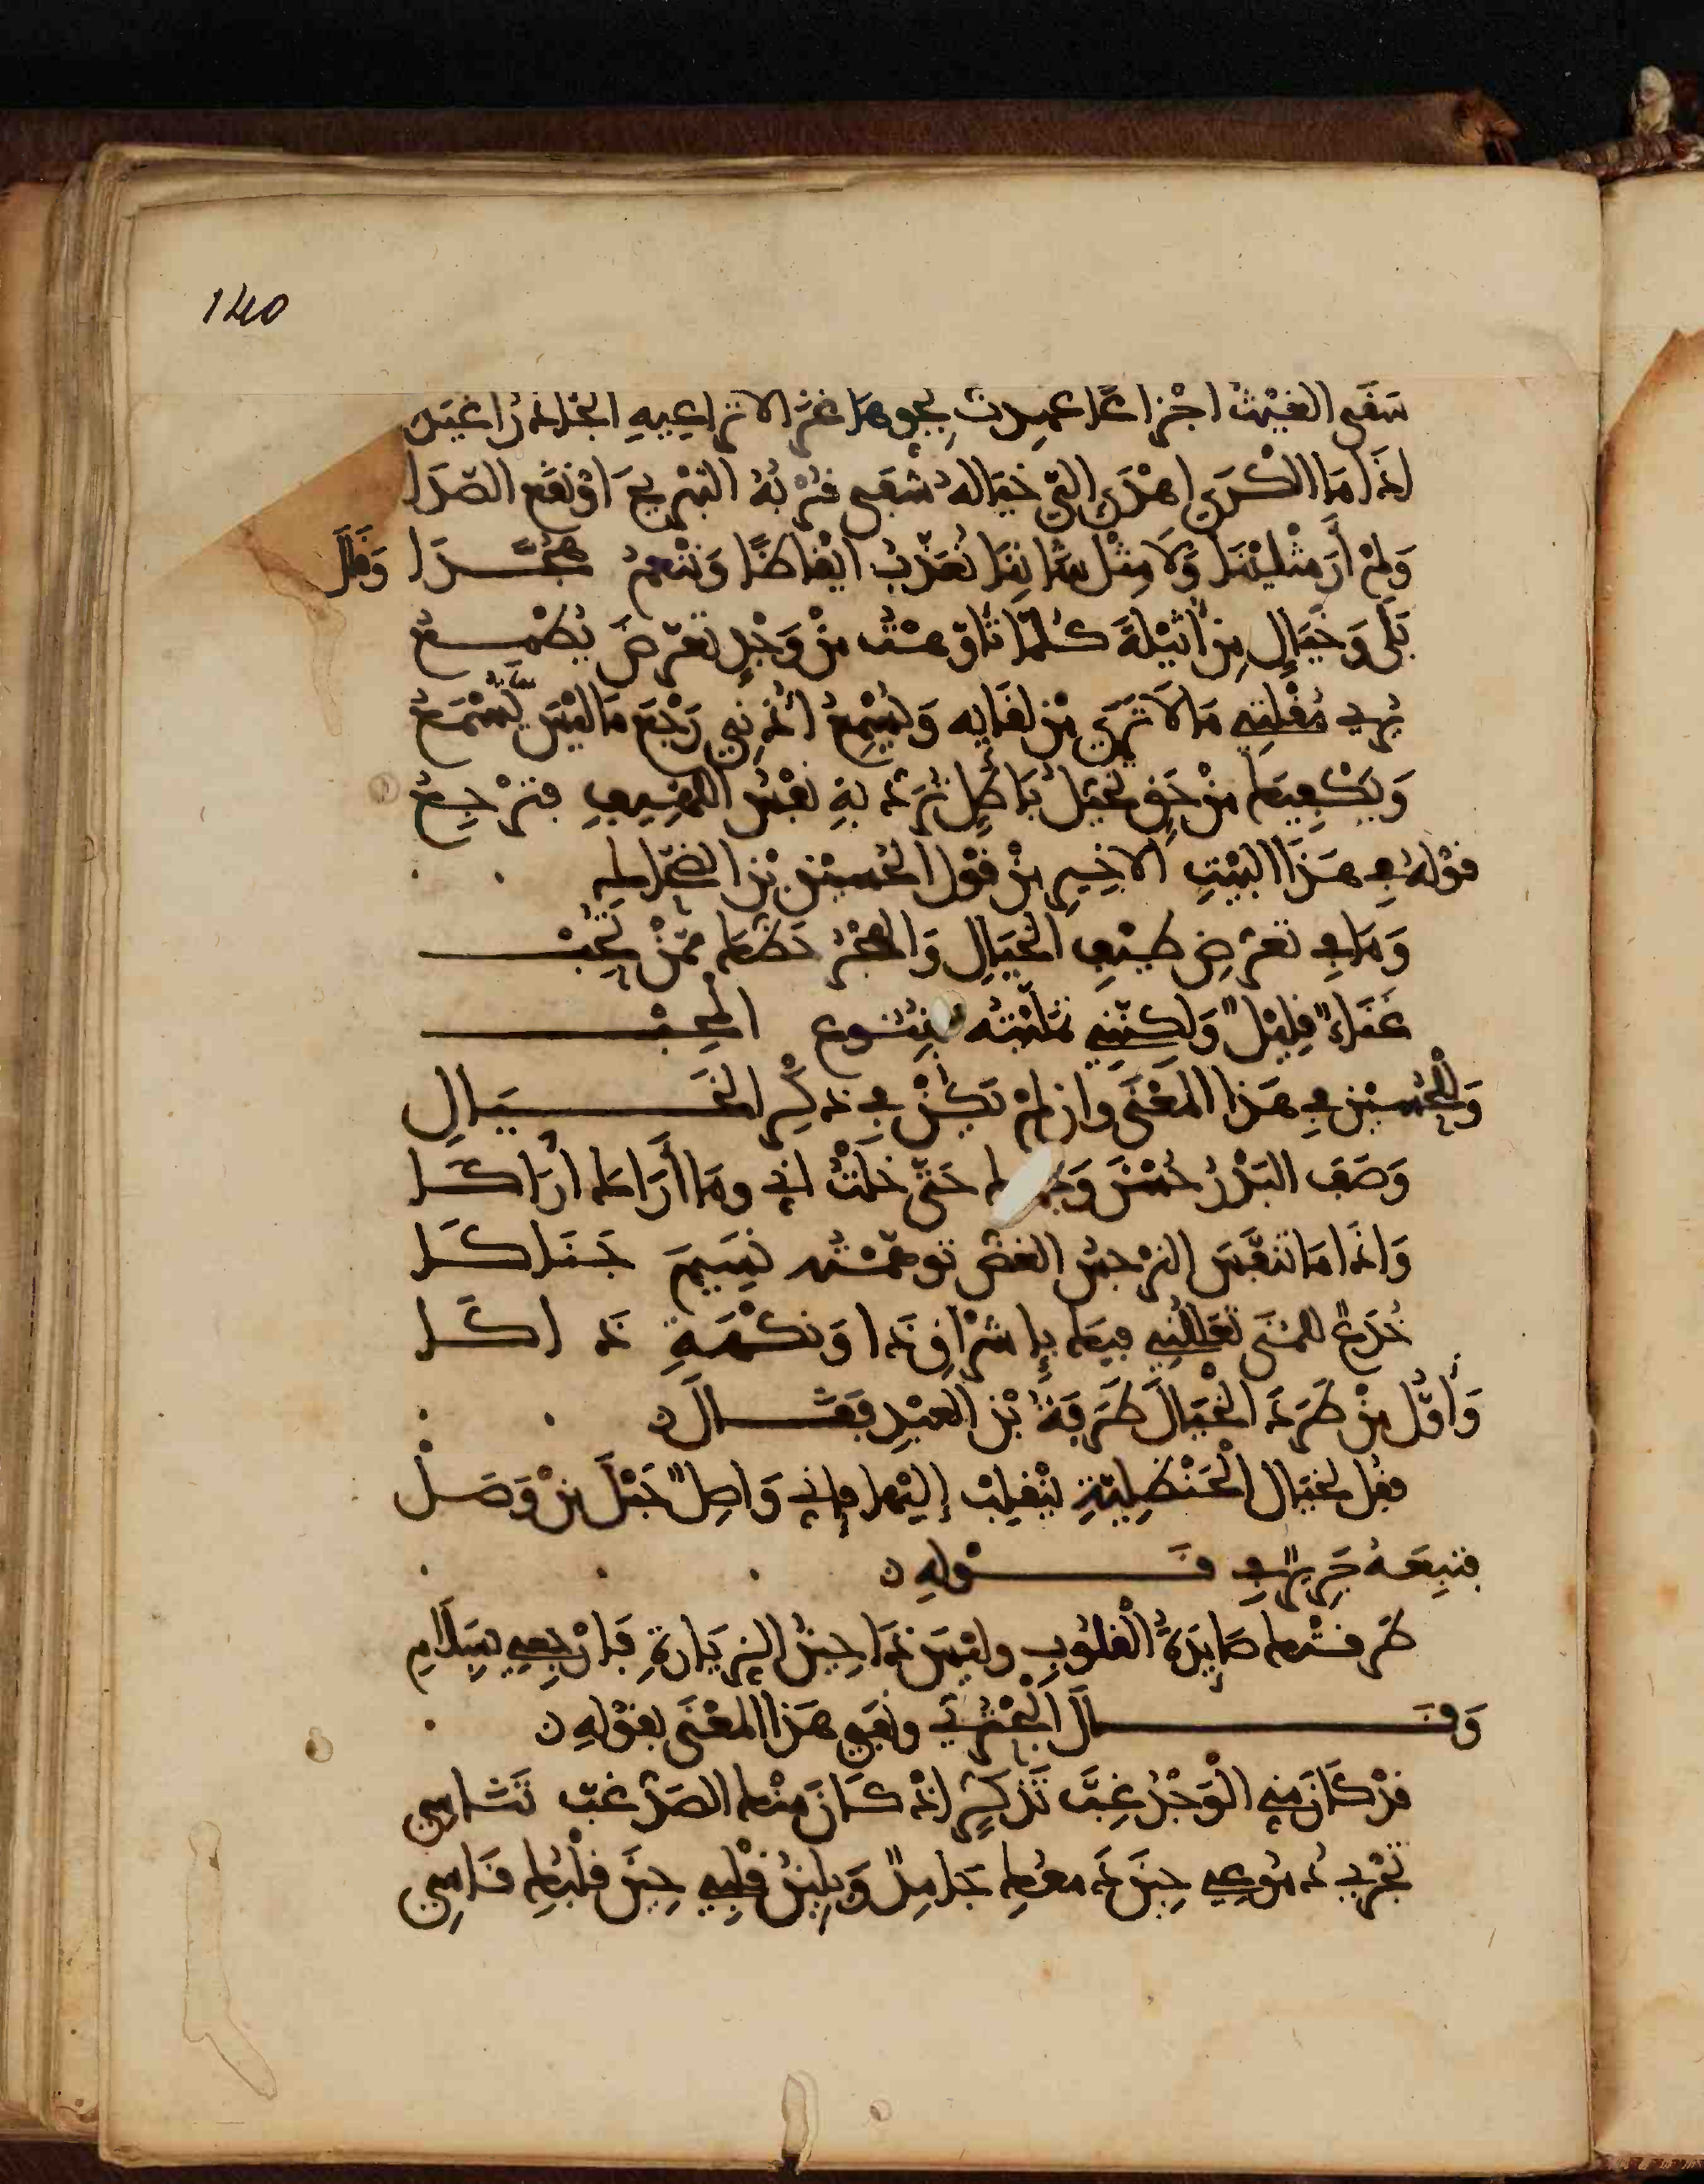 140
سَقَى الغَيْثُ اجْزاعًا عهِدتُ بِجوهَا غَزالا تراعِيهِ الجآذرُ اغيَد
اذَا مَا الكَرَى اهْدَى اليَّ خيَالهُ شفَى قُرْبُهُ التبريحَ اوْ نقَع الصّدَا
وَلمْ أرَ مثْليْنَا وَلَا مِثْل شانِنَا نُعَذّبُ ايْقاظًا وَنَنْعمُ هجّــدَا وَقَالَ
بَلَى وَخيَالٍ مِن أثيْلَةَ كُلّمَا تأوّهـتُ مِنْ وَجْدٍ تعَرّضَ يُطْمـعُ
يُرِي مُقْلَتِي مَا لَا تَرَى مِن لقَايِه وَيُسْمِعُ اذْنِي رَجْعَ مَا ليْسَ يُسْمَعُ
وَيَكْفِيكَ مِنْ حَقٍّ تخيُّلُ بَاطِلٍ تُرَدّ بهِ نفْسُ اللهِيفِ فترْجِعُ
قوْلهُ في هَذَا البَيْتِ الاخِيرِ مِنْ قوْل الحُسَيْن بْن الضّحاك
وَمَا في تعرّض طيْفِ الخيَالِ وَالهَجْرُ حَظّكَ ممّنْ تُحِبْــــ
عَنَاءٌ قليْلٌ وَلكنّنِي تمَلّيْتُه بخشوع المُحِبْــــ
وَللْحُسيْن في هَذا المَعْنَى وان لمْ تكُنْ في ذكرِ الخَــــيَالِ
وَصَفَ البَدْرُ حُسْنَ وَجهك حَتّى خلْتُ انّي ومَا أَرَاكَ ارَاكَــا
وَاذَا مَا تنَفّسَ النّرْجسُ الغضّ توهّمْتُه نسِيمَ جَنَاكَــا
خُدَعٌ للمُنَى تُعَلّلنِي فيكَ بإِشْرَاقِ ذَا وَنَكْهَةِ ذَاكَــا
وَأوّل مَنْ طَرَدَ الخَيَالَ طَرَفةُ بْن العَبْدِ فقَــــالَ
فقُلْ لخيَالِ الحَنْظَلِيّةِ ينْقلِبْ إليْهَا فإنّي وَاصِلٌ حَبْلَ مَنْ وَصَــلْ
فتبِعَهُ جَرِيرٌ في قَــــوْلهِ
طَرقتْكَ صَايدَةُ القُلوُبِ وليْسَ ذَا حِينَ الزيَارةِ فَارْجِعِي بسَلَامِ
وَقــــالَ البُحْتُرِي ونفَى هَذا المَعْنَى بقوْلهِ
قدْ كَانَ مِنّي الْوَجْدُ غِبَّ تَذكّرٍ اذْ كَانَ مِنْكَ الصَدّ غبّ تَنَاسِي
تجْرِي دُموُعِي حِينَ دَمْعُكَ جَامِدٌ وَيلينُ قلْبِي حِينَ قلْبُكَ قَاسِي